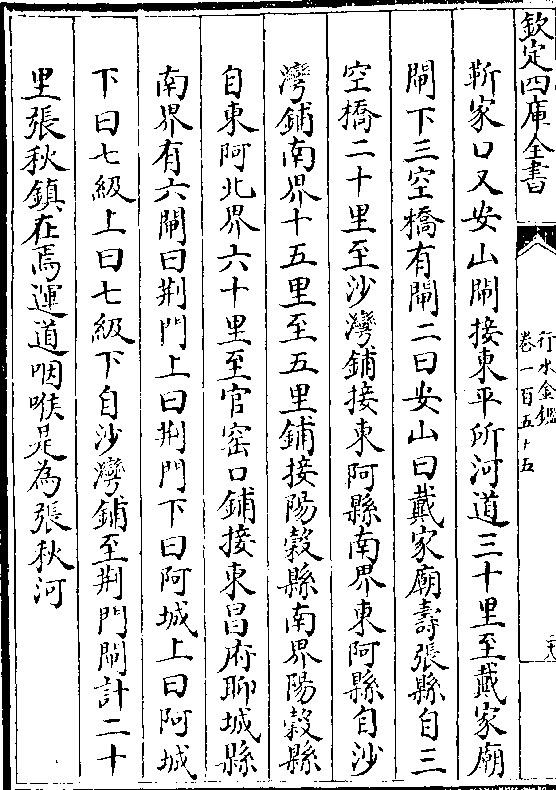 欽定四庫全書
行水金鑑
卷一百五十五
靳家口又安山閘接東平所河道三十里至戴家廟
閘下三空橋有閘二曰安山曰戴家廟壽張縣自三
空橋二十里至沙灣鋪接東阿縣南界東阿縣自沙
灣鋪南界十五里至五里鋪接陽穀縣南界陽穀縣
自東阿北界六十里至官窑口鋪接東昌府聊城縣
南界有六閘曰荆門上曰荆門下曰阿城上曰阿城
下曰七級上曰七級下自沙灣鋪至荆門閘計二十
里張秋鎮在焉運道咽喉是為張秋河